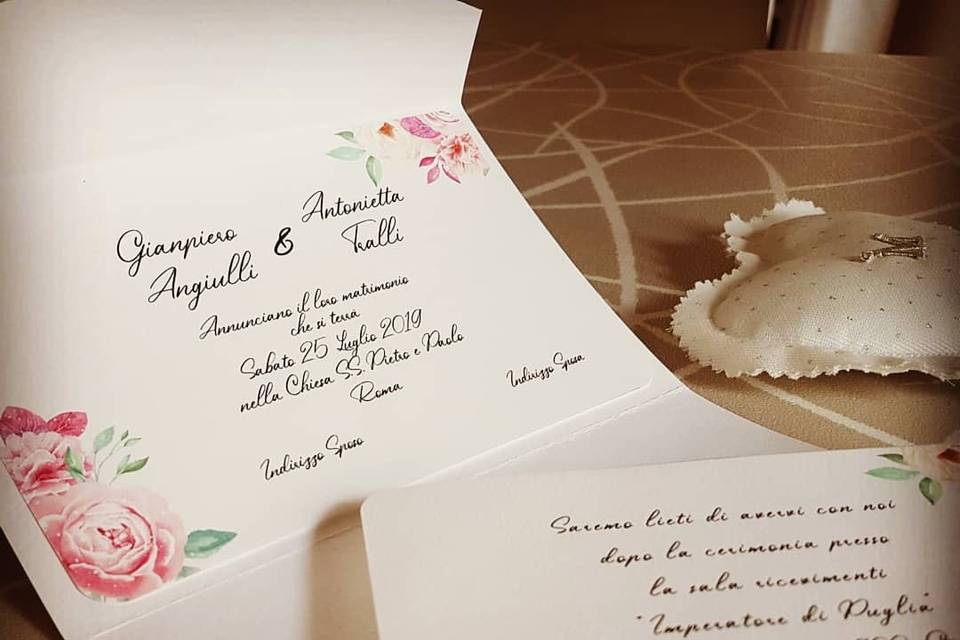 Gianpiero Angiulli
&
Antonietta Tralli
Annunciano il loro matrimonio
che si terrà
Sabato 25 Luglio 2019
nella Chiesa SS. Pietro e Paolo
Roma
Indirizzo Sposo
Indirizzo Sposa
Saremo lieti di avervi con noi
dopo la cerimonia presso
la sala ricevimenti
"Imperatore di Puglia"